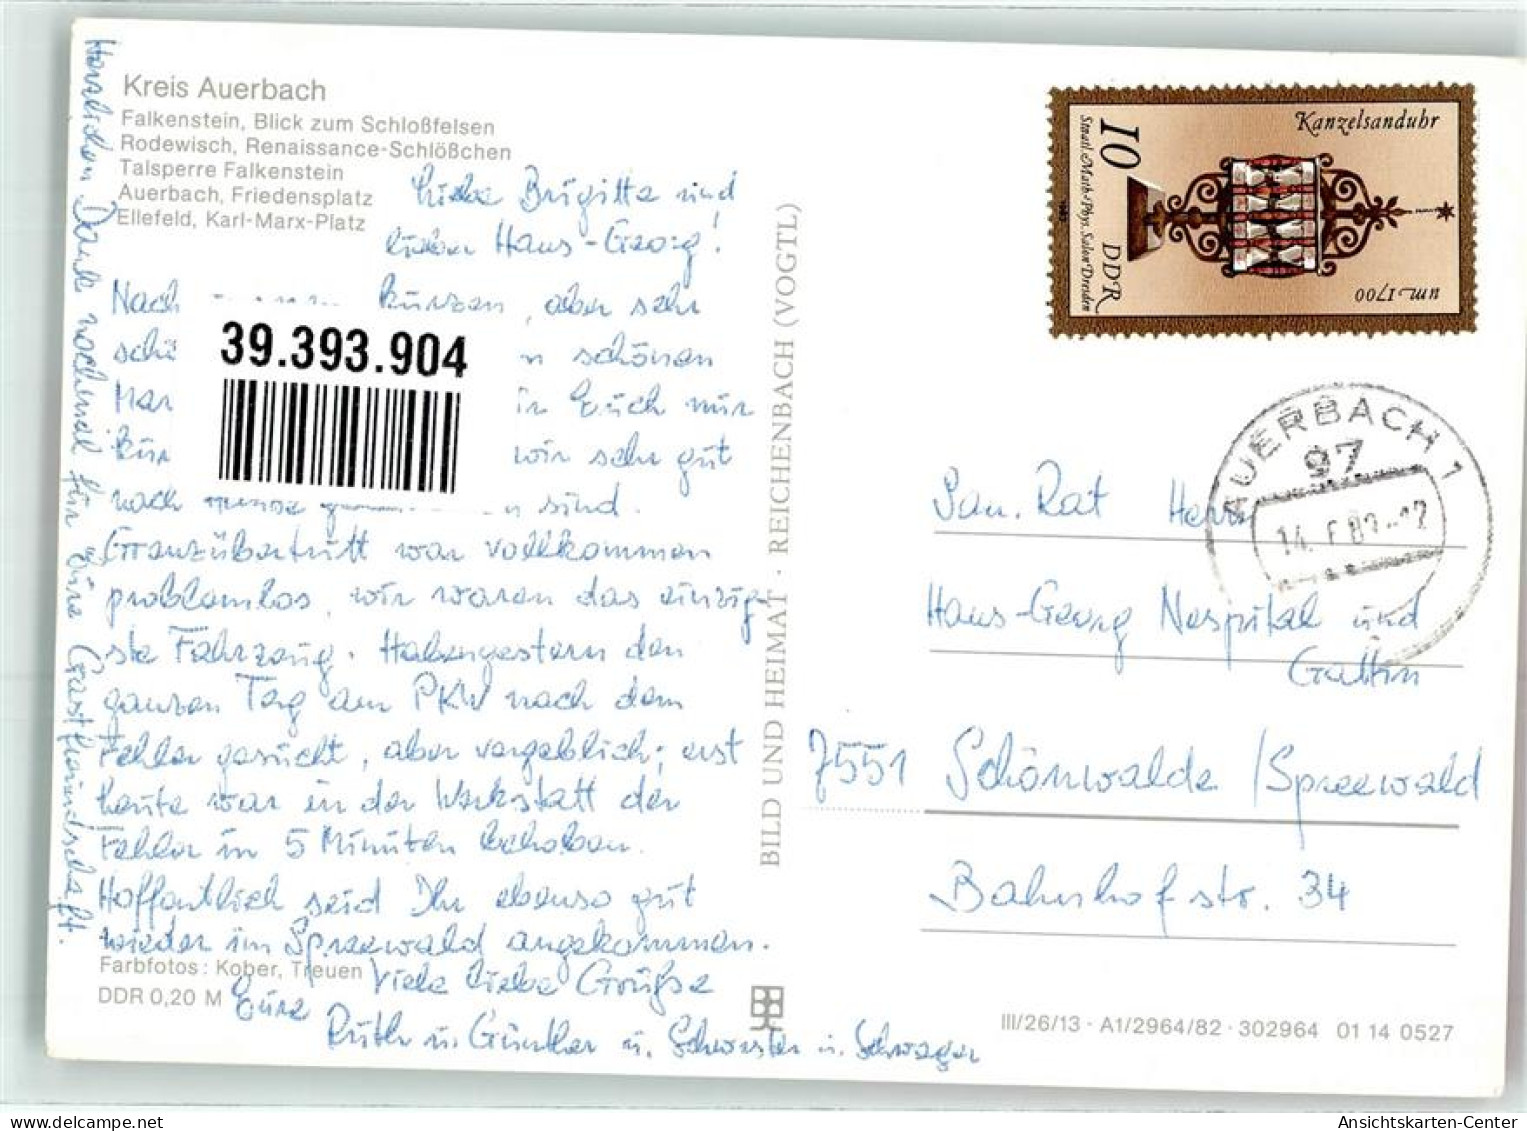 Kreis Auerbach
Falkenstein, Blick zum Schloßfelsen
Rodewisch, Renaissance-Schlößchen
Talsperre Falkenstein
Auerbach, Friedensplatz
Ellefeld, Karl-Marx-Platz
Liebe Brigitte und
lieber Hans-Georg!
Nach kurzen, aber sehr
schönen
39.393.904
Euch nur
wir sehr gut
nach sind.
Grenzübertritt war vollkommen
problemlos, wir waren das einzig-
ste Fahrzeug. Haben gestern den
ganzen Tag am PKW nach dem
Fehler gesucht, aber vergeblich; erst
heute war in der Werkstatt der
Fehler in 5 Minuten behoben.
Hoffentlich seid Ihr ebenso gut
wieder im Spreewald angekommen.
Viele liebe Grüße
Eure
Ruth u. Günther u. Schwester u. Schwager
Herzlichen Dank nochmal für Eure Gastfreundschaft.
Farbfotos: Kober, Treuen
DDR 0,20 M
BILD UND HEIMAT · REICHENBACH (VOGTL)
Kanzelsanduhr
um 1700
10
DDR
Staatl. Math.-Phys. Salon Dresden
AUERBACH 1
97
San. Rat Herrn
Hans-Georg Nespital und
Gattin
7551 Schönwalde/Spreewald
Bahnhofstr. 34
III/26/13 · A1/2964/82 · 302964 01 14 0527
Ansichtskarten-Center